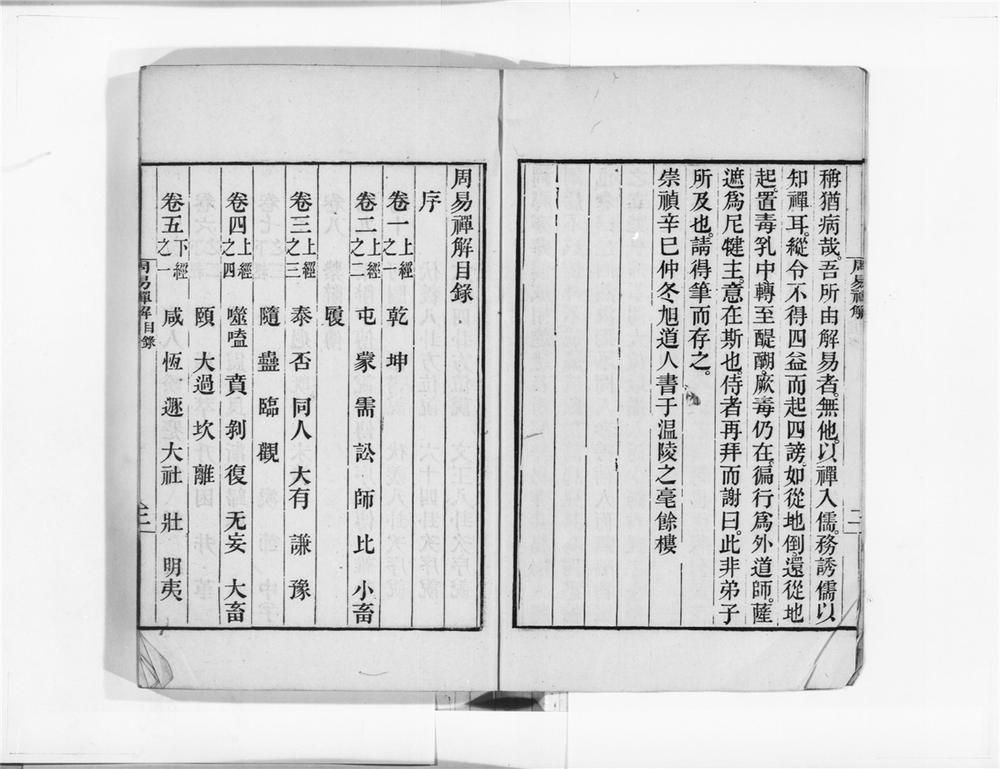 稱猶病哉。吾所由解易者。無他。以禪入儒。務誘儒以
知禪耳。縱令不得四益而起四謗。如從地倒。還從地
起。置毒乳中轉至醍醐。厥毒仍在。徧行爲外道師。薩
遮爲尼犍主。意在斯也。侍者再拜而謝曰。此非弟子
所及也。請得筆而存之。
崇禎辛巳仲冬旭道人書于温陵之毫餘樓
周易禪解
二
周易禪解目錄
序
卷一上經之一 乾 坤
卷二上經之二 屯 蒙 需 訟 師 比 小畜
履
卷三上經之三 泰 否 同人 大有 謙 豫
隨 蠱 臨 觀
卷四上經之四 噬嗑 賁 剝 復 无妄 大畜
頤 大過 坎 離
卷五下經之一 咸 恆 遯 大社 壯 明夷
周易禪解目錄